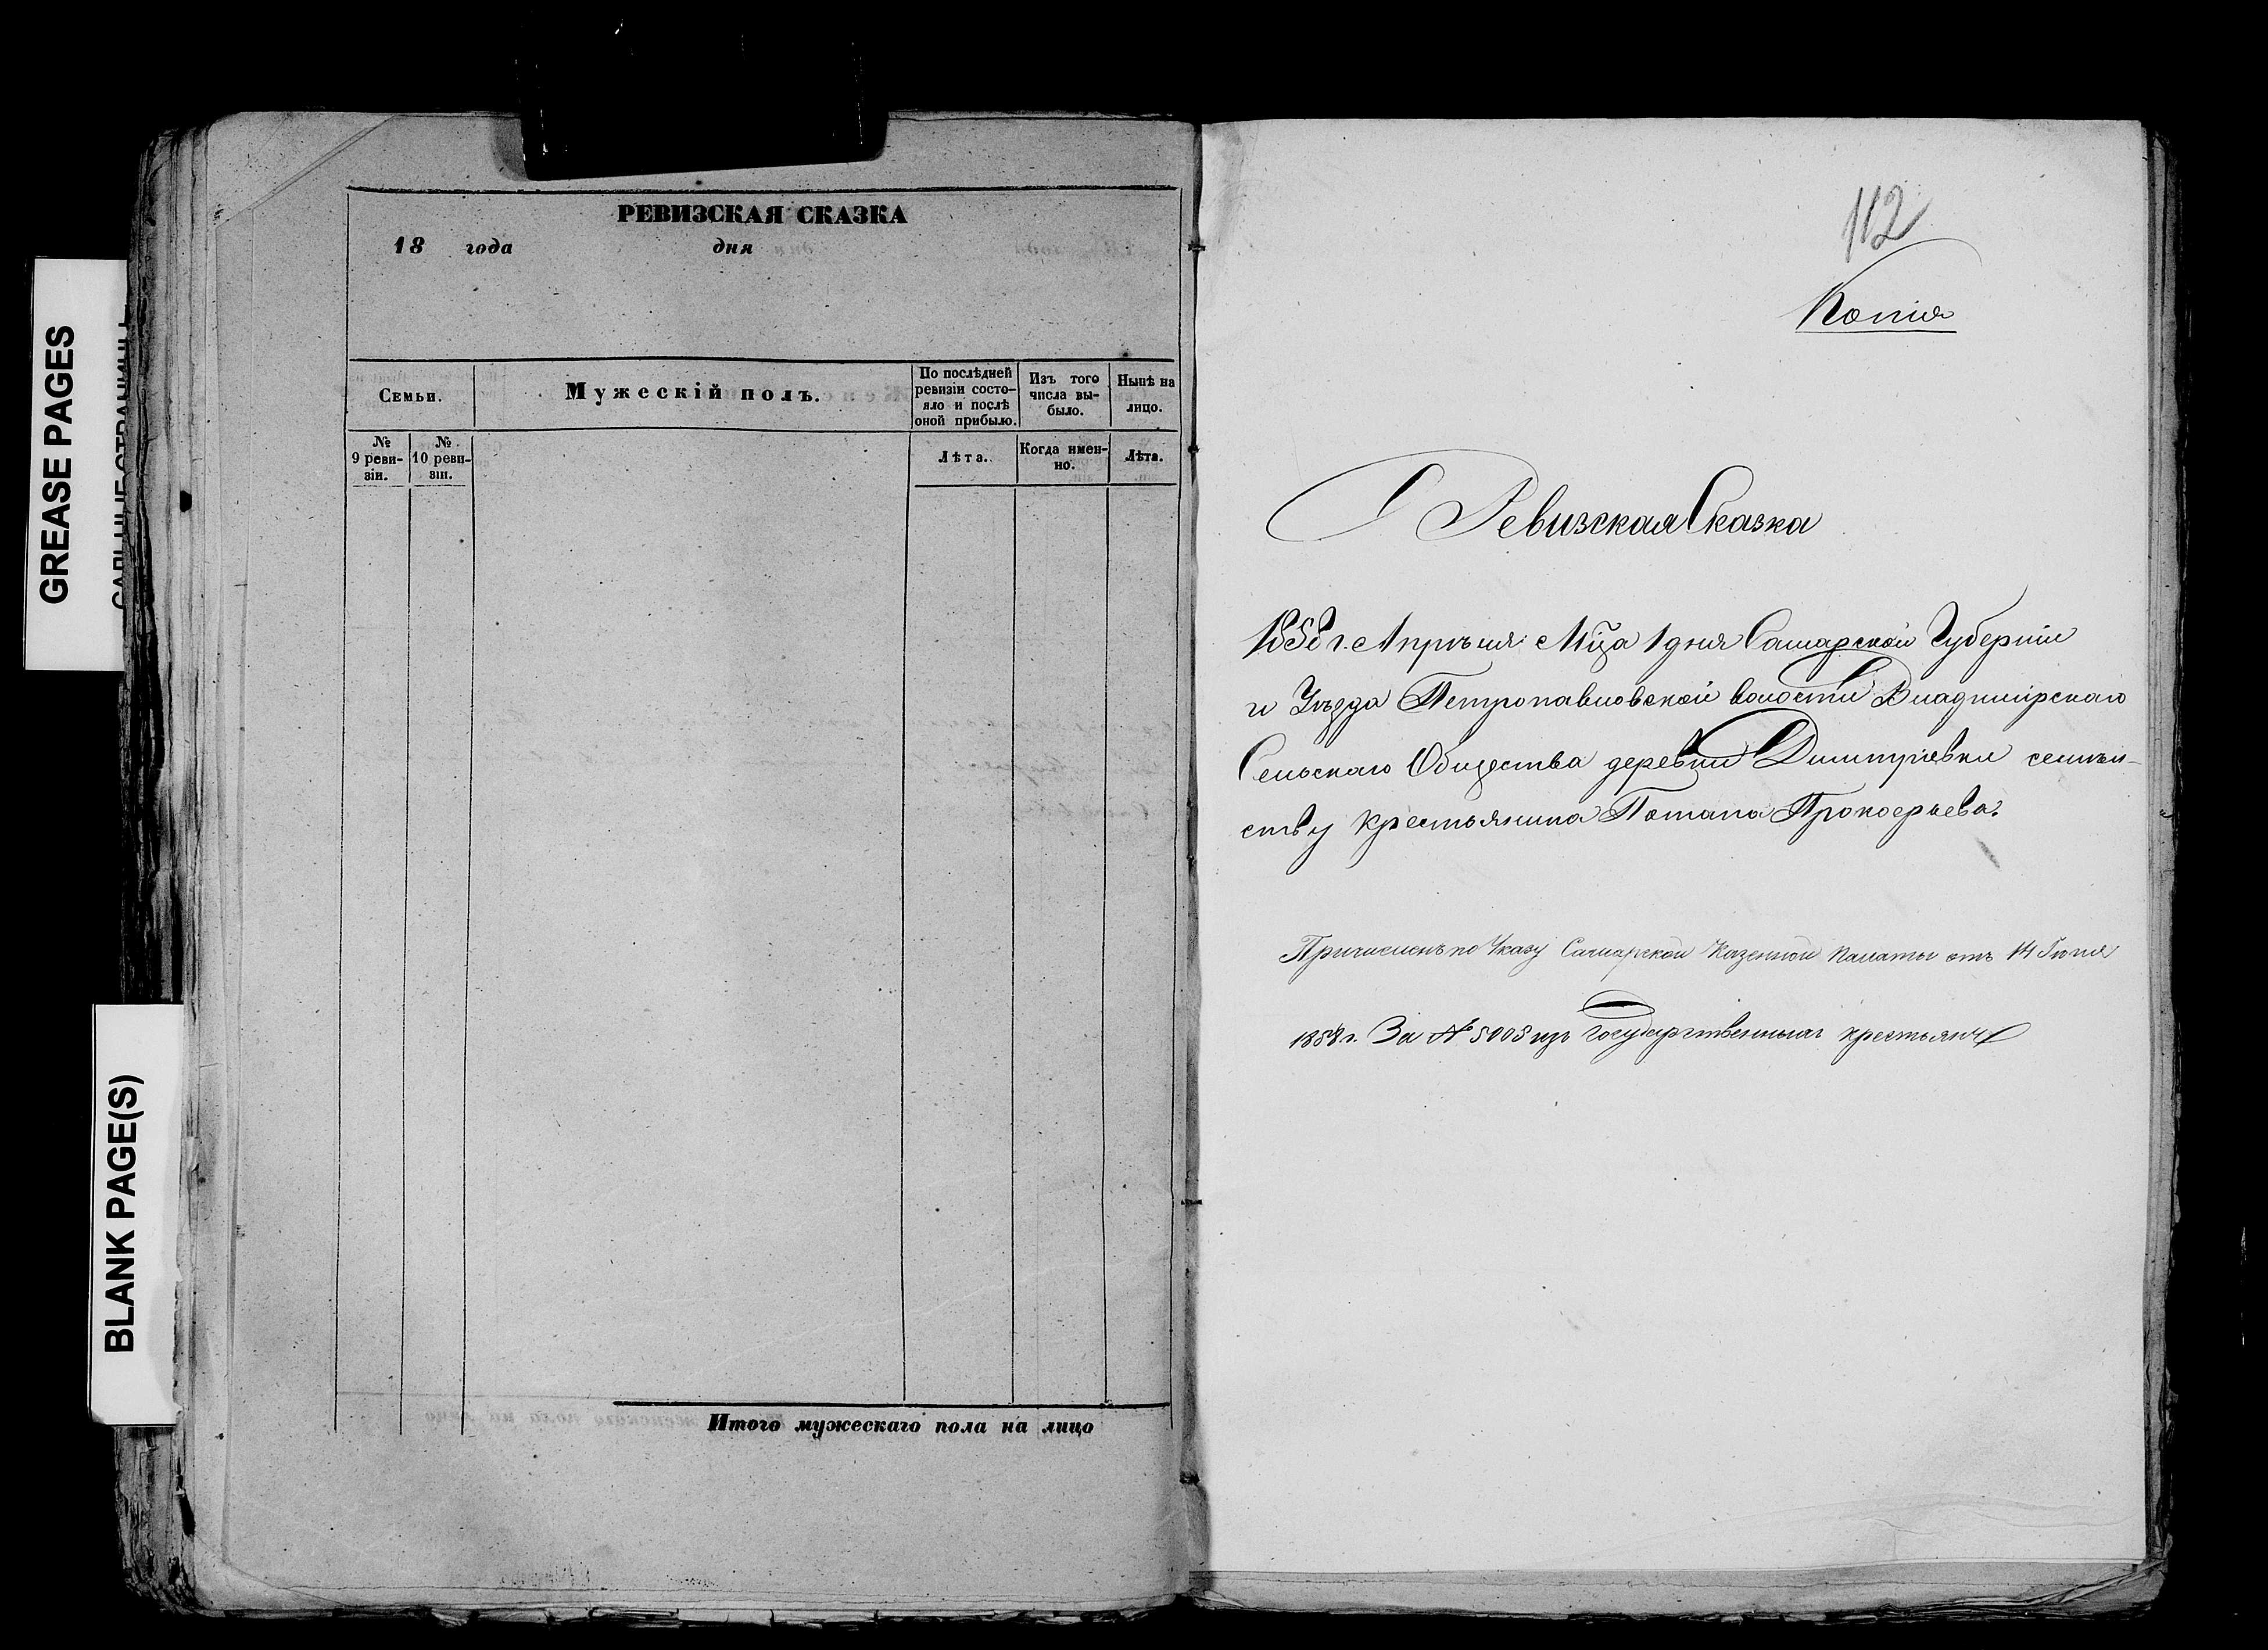 GREASE PAGES
BLANK PAGE(S)
РЕВИЗСКАЯ СКАЗКА
18 года дня
Семьи.
Мужескій полъ.
По послѣдней
ревизіи состо-
яло и послѣ
оной прибыло.
Изъ того
числа вы-
было.
Нынѣ на
лицо.
№
9 реви-
зіи.
№
10 реви-
зіи.
Лѣта.
Когда имен-
но.
Лѣта.
Итого мужескаго пола на лицо
112
Копія
Ревизская Сказка
1858 г. Апрѣля Мца 1 дня Самарской Губерніи
и Уѣзда Петропавловской волости Владимірскаго
Сельскаго Общества деревни Димитріевки семѣй-
ству крестьянина Потапа Прокофьева.
Причисленъ по Указу Самарской Казенной Палаты отъ 14 Іюня
1858 г. За № 5005 изъ государственныхъ крестьянъ